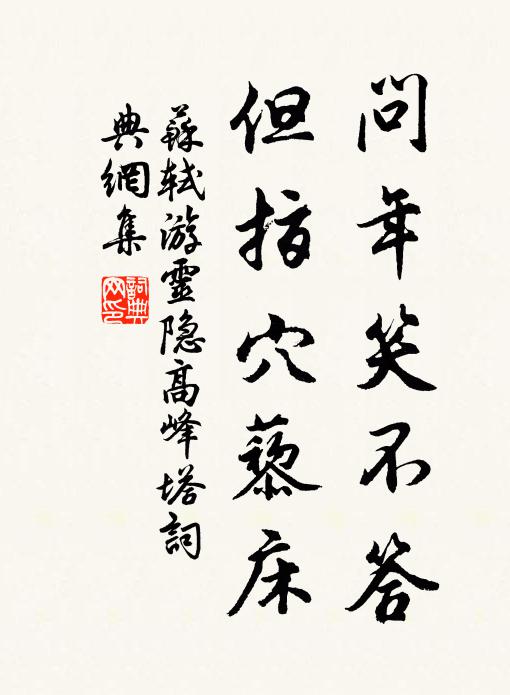 問年笑不答
但指穴藜床
蘇軾游靈隐高峰塔詞
典網集
詞典網印